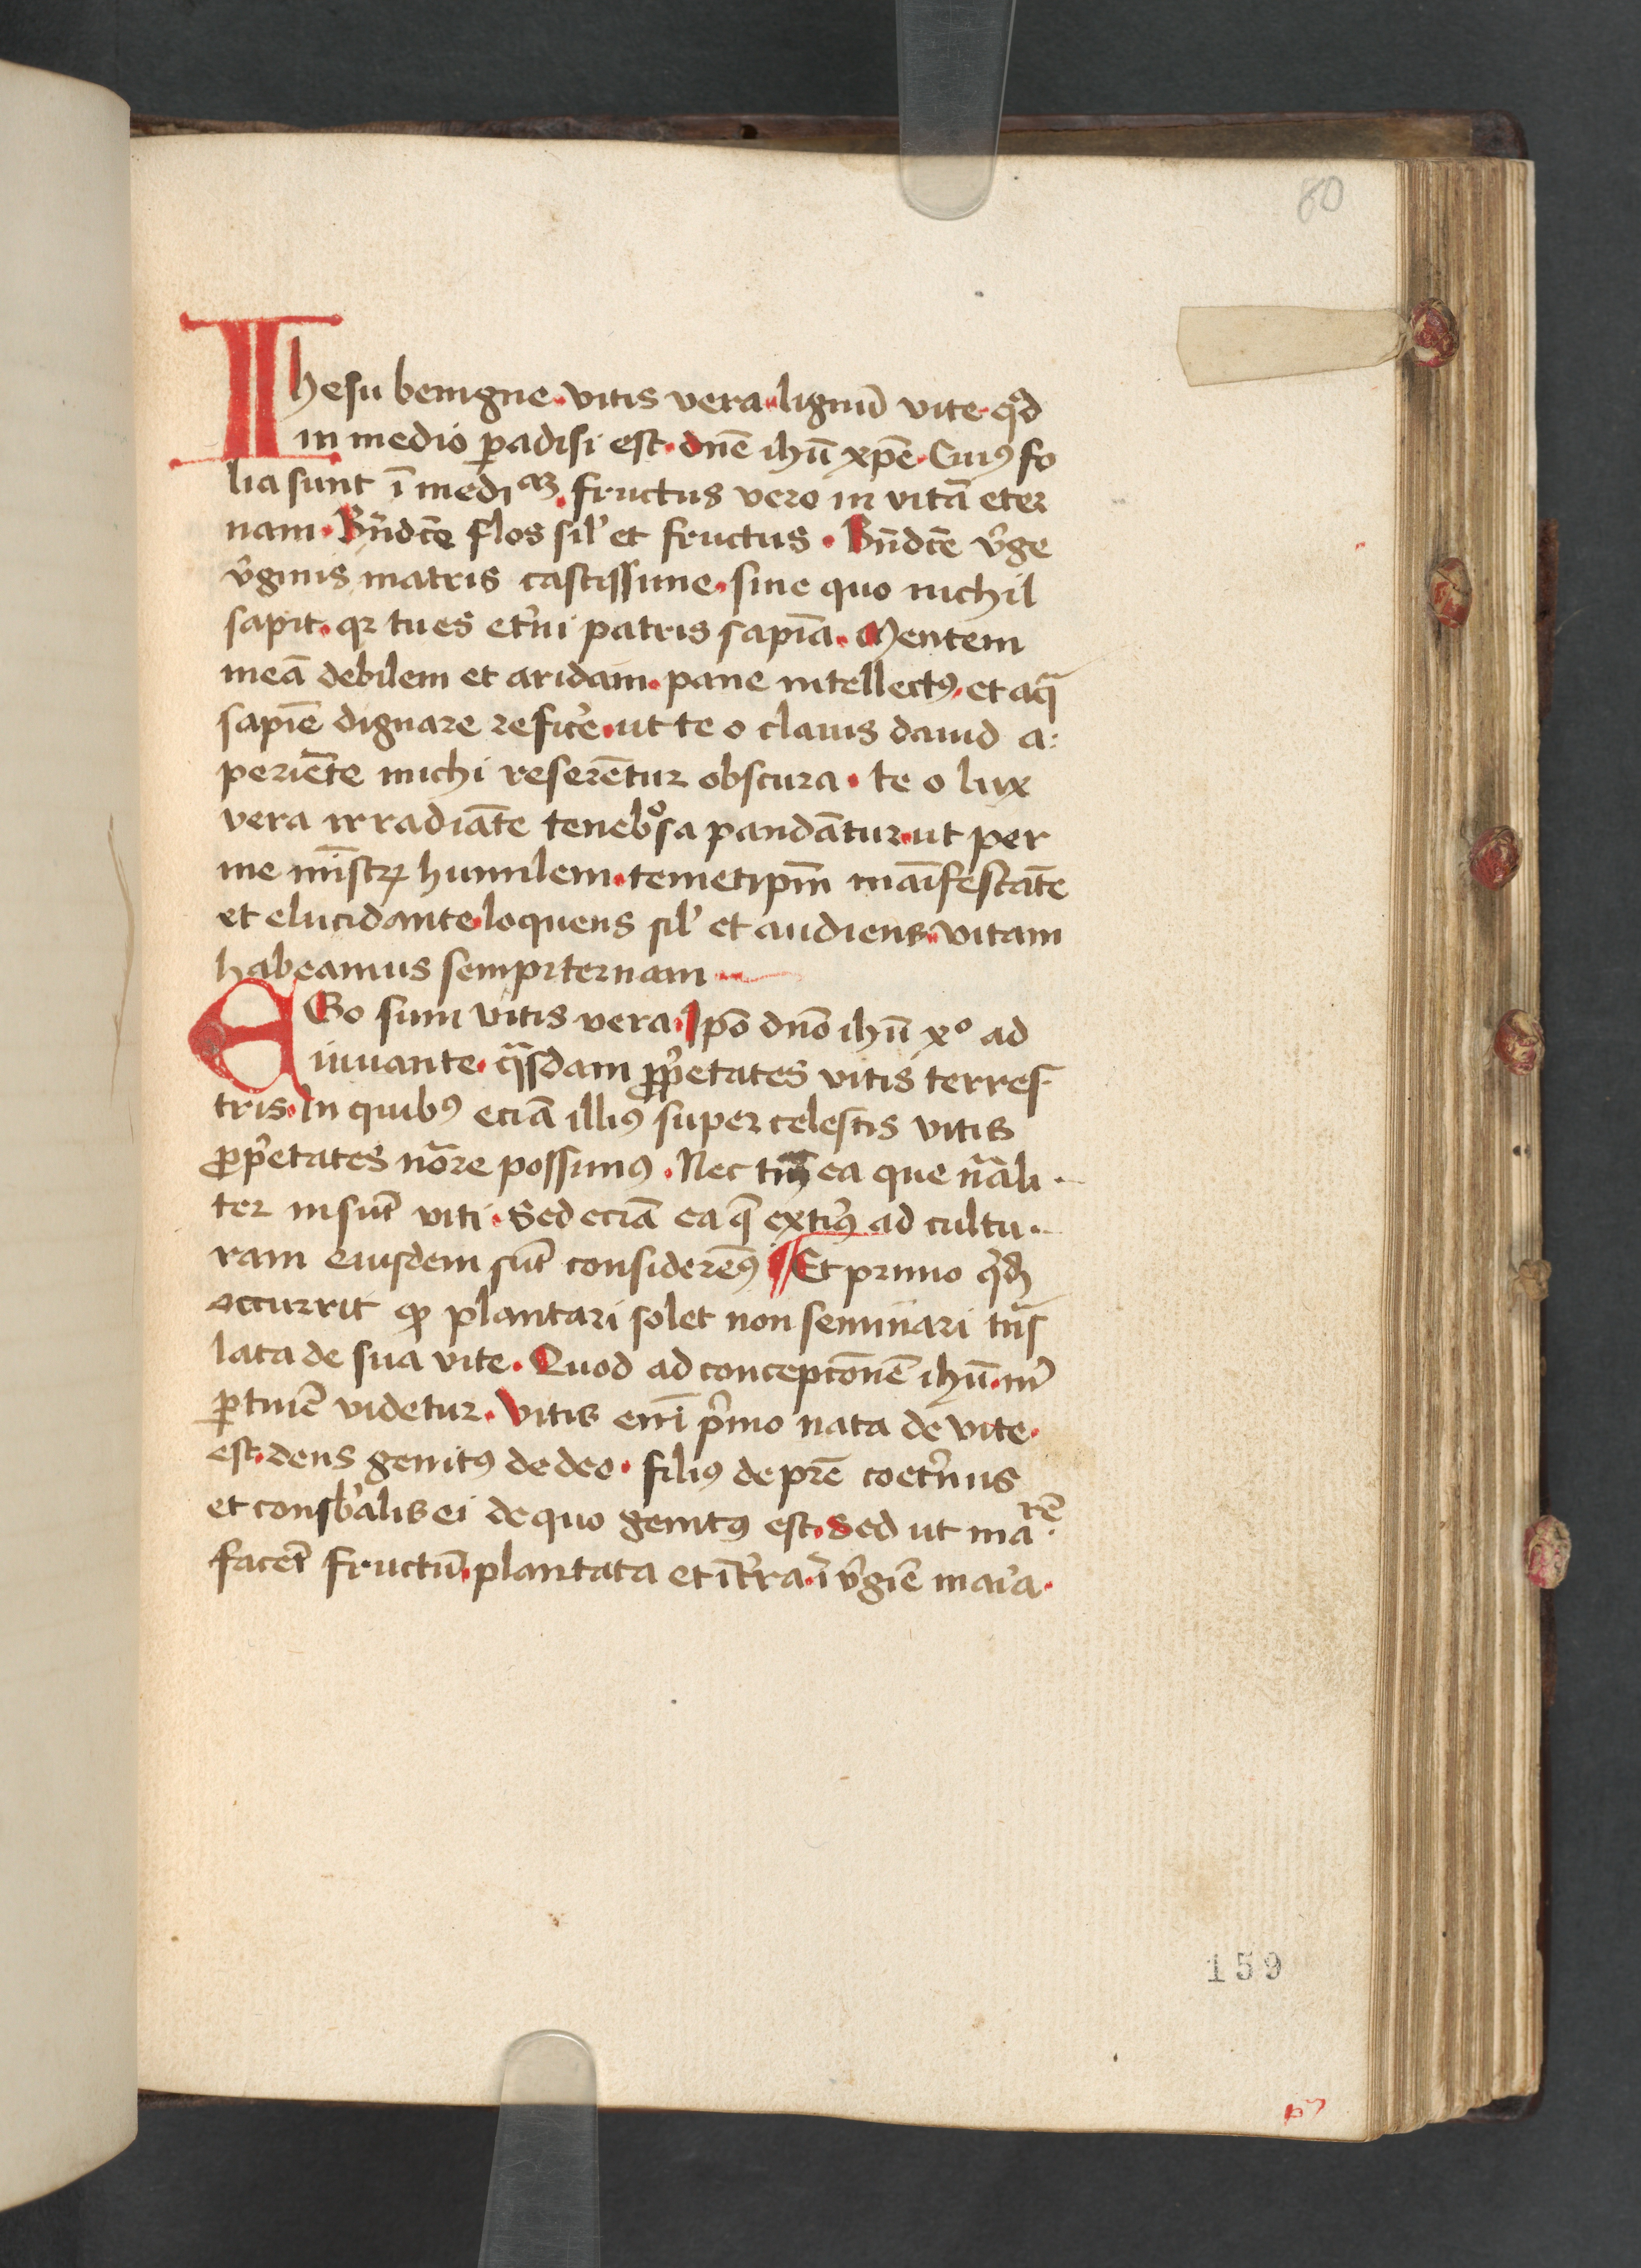 80
Ihesu benigne. vitis vera. lignū vite. qd
in medio padisi est. dnē ihū xpē. Cuiꝰ fo
lia sunt ī mediaꝫ. fructus vero in vitā eter
nam. Bndcē flos sil' et fructus. Bndcē v̓ge
v̓ginis matris castissime. sine quo nichil
sapit. qꝛ tu es et̓ni patris sapīa. Mentem
meā debilem et aridam. pane intellectꝰ. et aqᷓ
sapīe dignare refice̓. ut te o clauis dauid a:
periēte michi reserētur obscura. te o lux
vera irradiāte tenebͦsa pandātur. ut per
me mīstꝝ humilem. temetipm̄ maīfestāte
et elucidante. loquens sil' et audiens. vitam
habeamus sempiternam
EGo sum vitis vera. Ipō dnō ihū xº ad
iuuante. qᷓsdam ꝓp̓etates vitis terres
tris. In quibꝰ eciā illiꝰ super celestis vitis
ꝓp̓etates nōre possumꝰ. Nec tm̄ ea que nᷓali
ter insūt viti. Sed eciā ea q̄ ext̓iꝰ ad cultu
ram eiusdem sūt considerēꝰ ¶ Et primo qd
occurrit ꝙ plantari solet non seminari tnᷓs
lata de sua vite. Quod ad concepcōnē ihū. nr̄i
ꝑtinē videtur. Vitis enī p̓mo nata de vite.
est. deus genitꝰ de deo. filiꝰ de prē coet̓nus
et consb̓alis ei de quo genitꝰ est. Sed ut maᷓ. rē
facēt fructū. plantata et ī t̓ra. ī v̓giē maria.
159